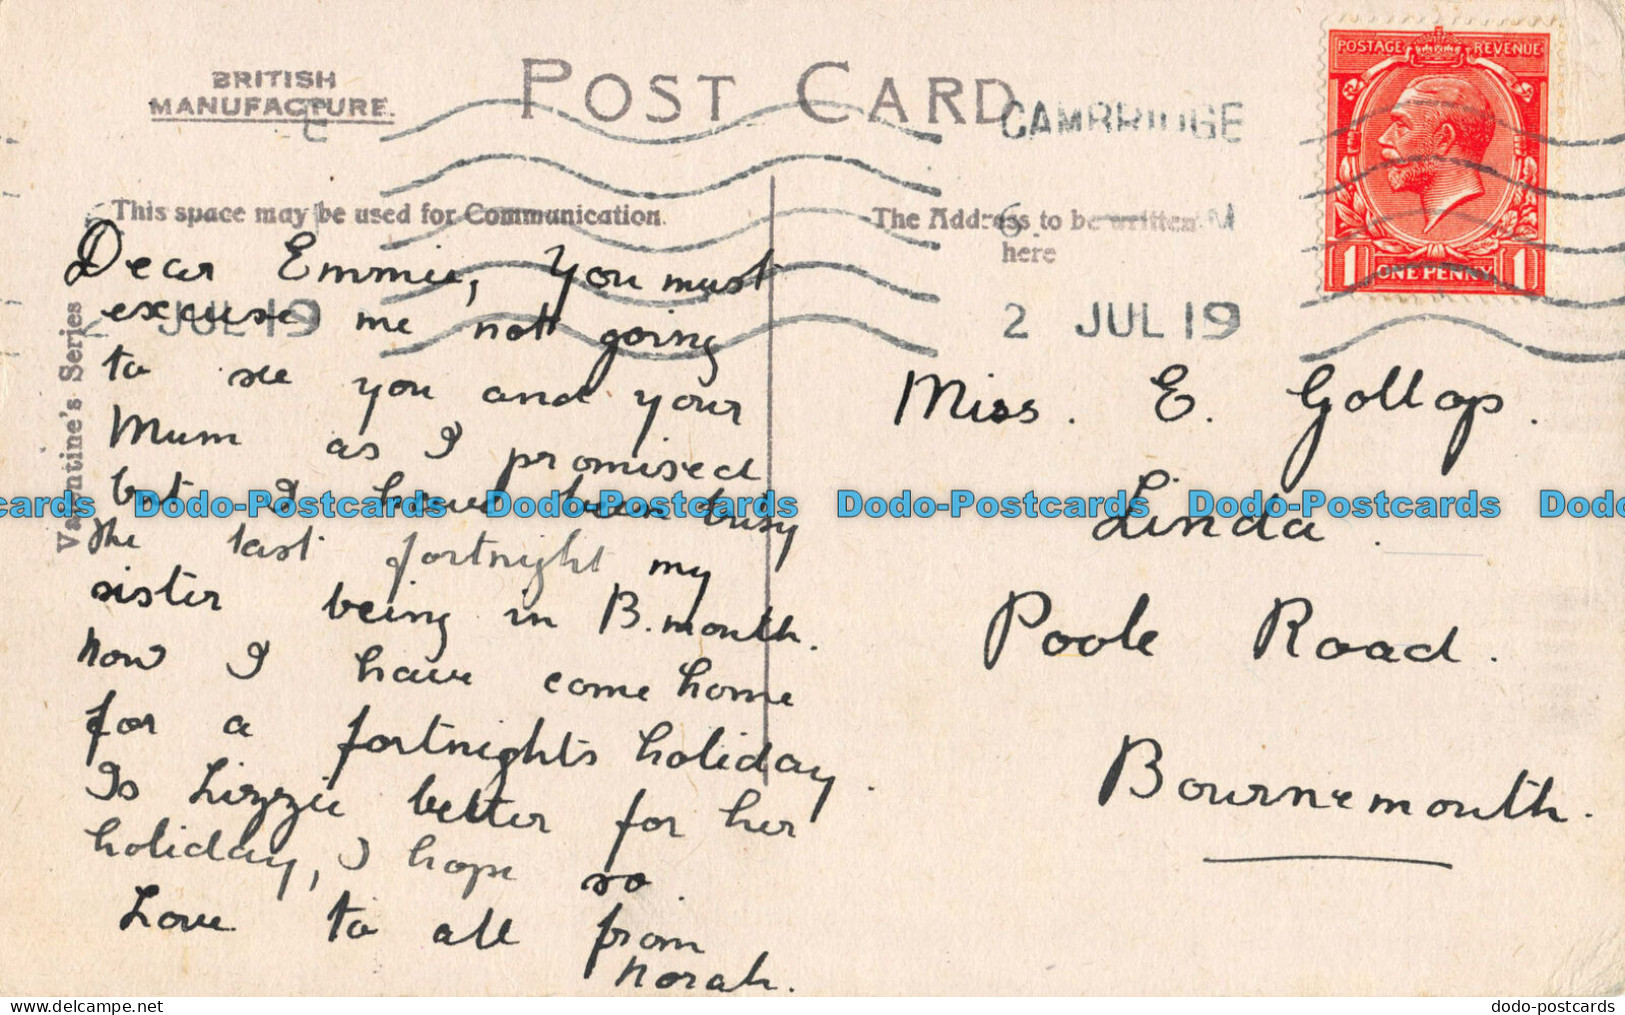 BRITISH
MANUFACTURE.
POST CARD
CAMBRIDGE
POSTAGE REVENUE
1 ONE PENNY 1
This space may be used for Communication.
The Address to be written
here
2 JUL 19
JUL 19
Valentine's Series
Dear Emmie, You must
excuse me not going
to see you and your
Mum as I promised
but I have been busy
the last fortnight my
sister being in B.mouth.
Now I have come home
for a fortnights holiday.
Is Lizzie better for her
holiday, I hope so.
Love to all from
Norah.
Miss. E. Gollop.
Linda.
Poole Road.
Bournemouth.
Dodo-Postcards Dodo-Postcards Dodo-Postcards Dodo-Postcards Dodo-Postcards
ebay.com/str/dodopostcards
dodo-postcards